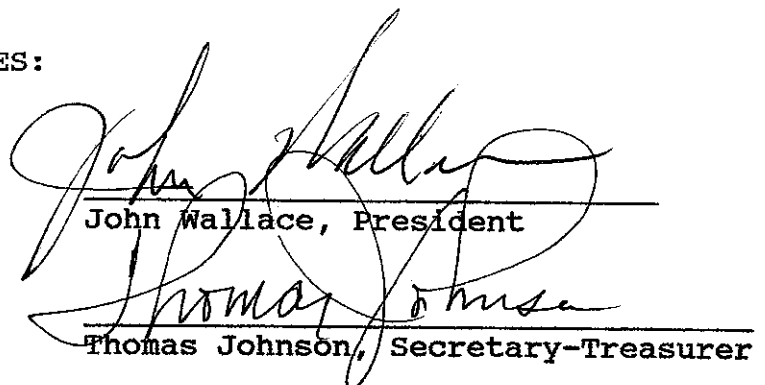 ES:
John Wallace
John Wallace, President
Thomas Johnson
Thomas Johnson, Secretary-Treasurer